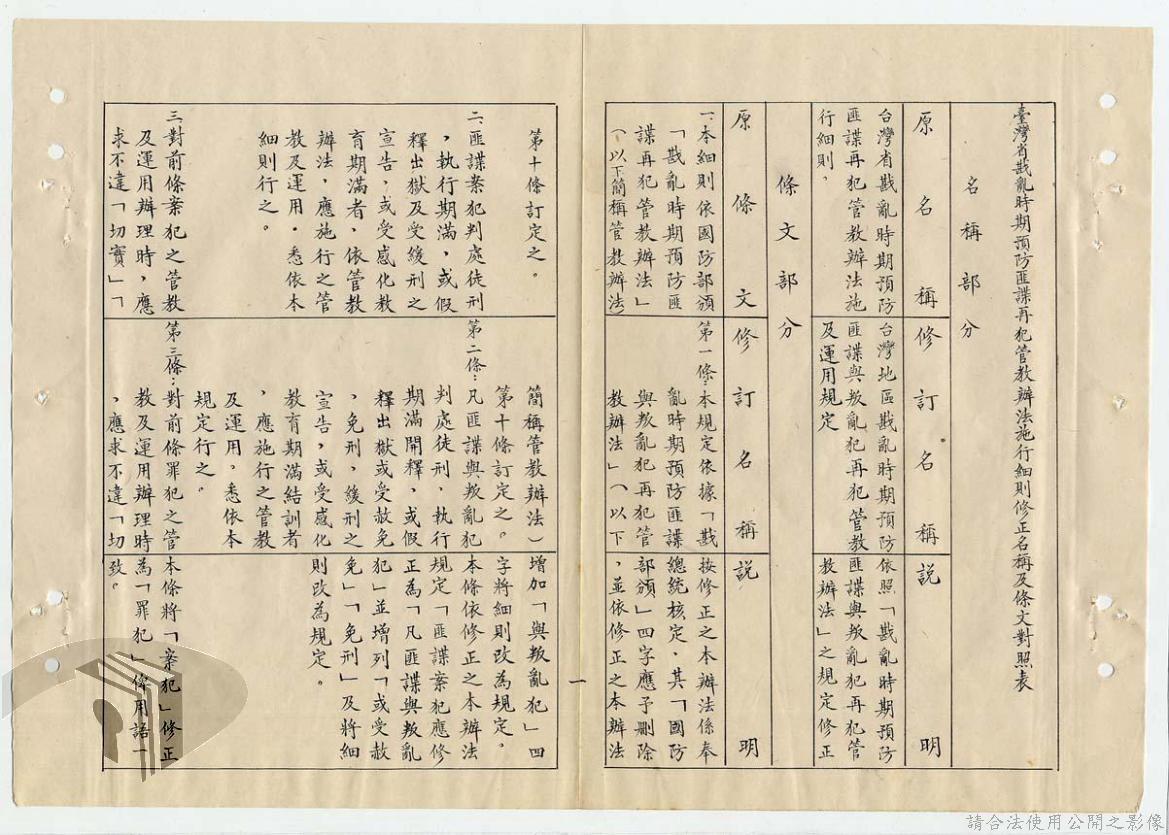 臺灣省戡亂時期預防匪諜再犯管教辦法施行細則修正名稱及條文對照表
名稱部分
原名稱
修訂名稱
說明
台灣省戡亂時期預防
匪諜再犯管教辦法施
行細則。
台灣地區戡亂時期預防
匪諜與叛亂犯再犯管教
及運用規定
依照「戡亂時期預防
匪諜與叛亂犯再犯管
教辦法」之規定修正
條文部分
原條文
修訂名稱
說明
一、本細則依國防部頒
「戡亂時期預防匪
諜再犯管教辦法」
(以下簡稱管教辦法
第一條:本規定依據「戡
亂時期預防匪諜
與叛亂犯再犯管
教辦法」(以下
按修正之本辦法係奉
總統核定,其「國防
部頒」四字應予刪除
,並依修正之本辦法
一
第十條訂定之。
二、匪諜案犯判處徒刑
,執行期滿,或假
釋出獄及受緩刑之
宣告,或受感化教
育期滿者,依管教
辦法,應施行之管
教及運用,悉依本
細則行之。
三、對前條案犯之管教
及運用辦理時,應
求不違「切實」「
簡稱管教辦法)
第十條訂定之。
第二條:凡匪諜與叛亂犯
判處徒刑,執行
期滿開釋,或假
釋出獄或受赦免
,免刑,緩刑之
宣告,或受感化
教育期滿結訓者
,應施行之管教
及運用,悉依本
規定行之。
第三條:對前條罪犯之管
教及運用辦理時
,應求不違「切
增加「與叛亂犯」四
字將細則改為規定。
本條依修正之本辦法
規定「匪諜案犯應修
正為「凡匪諜與叛亂
犯」並增列「或受赦
免」「免刑」及將細
則改為規定。
本條將「案犯」修正
為「罪犯」俾用語一
致。
請合法使用公開之影像